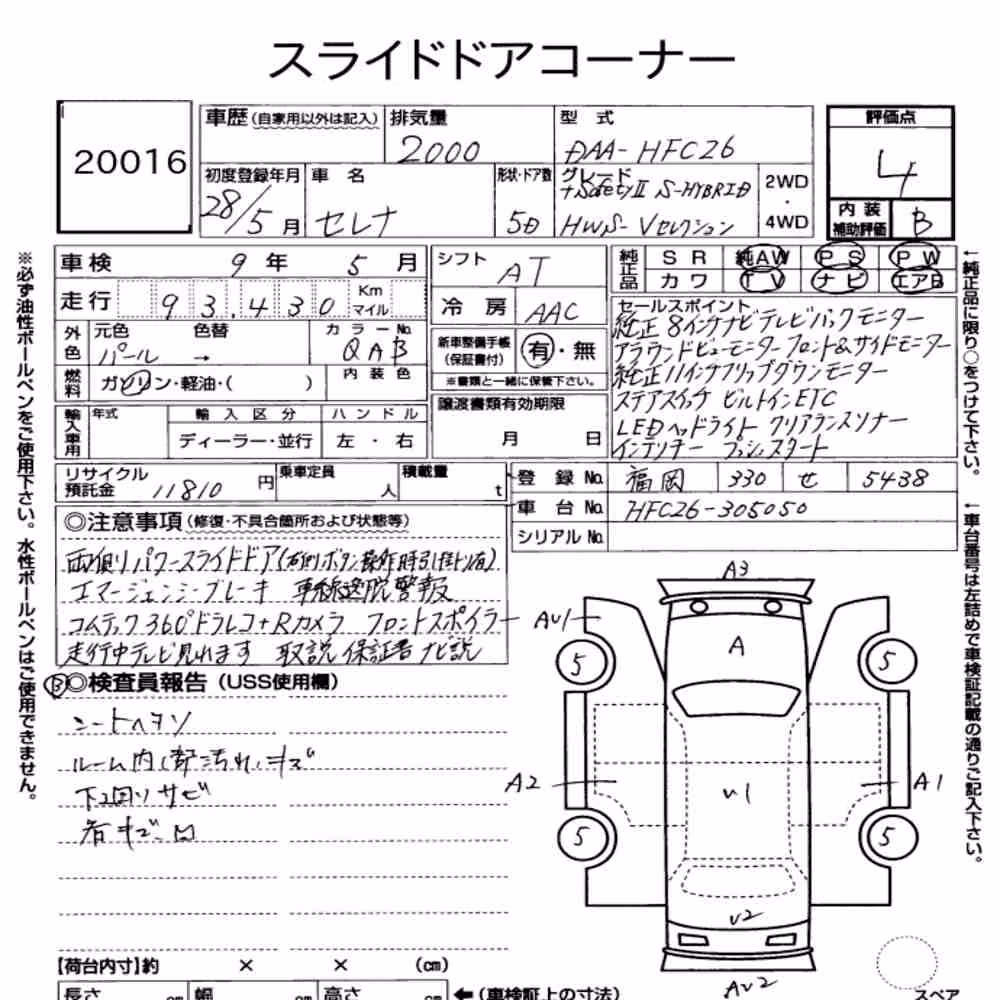 スライドドアコーナー
20016
車歴 (自家用以外は記入) 排気量 型 式 評価点
2000 DAA-HFC26 4
初度登録年月 車 名 形状・ドア数 グレード 2WD
・
4WD
28/5月 セレナ 5D +SafetyⅡ S-HYBRID
HWS-Vセレクション
内 装
補助評価 B
車 検 9 年 5 月 シフト AT
純正品 S R 純AW P S P W
カ ワ T V ナ ビ エアB
走 行 93,430 Km
マイル
冷 房 AAC
外色 元色 色替 カラーNo.
パール → QAB
新車整備手帳
(保証書付) 有・無
※書類と一緒に保管下さい。
燃料 ガソリン・軽油・( ) 内 装 色
輸入車用 年式 輸 入 区 分 ハ ン ド ル
ディーラー・並行 左 ・ 右
譲渡書類有効期限
月 日
セールスポイント
純正8インチナビテレビバックモニター
アラウンドビューモニターフロント&サイドモニター
純正11インチフリップダウンモニター
ステアスイッチ ビルトインETC
LEDヘッドライト クリアランスソナー
インテリキー プッシュスタート
リサイクル
預託金 11810 円 乗車定員 人 積載量 t
登 録 No. 福岡 330 せ 5438
車 台 No. HFC26-305050
シリアル No.
◎注意事項 (修復・不具合箇所および状態等)
両側パワースライドドア(右側ボタン操作時引掛り有)
エマージェンシーブレーキ 車線逸脱警報
コムテック360°ドラレコ+Rカメラ フロントスポイラー
走行中テレビ見れます 取説 保証書 ナビ説
B ◎検査員報告 (USS使用欄)
シートヘタリ
ルーム内 部汚れ、キズ
下回りサビ
A3
AU1
A
5 5
A2
U1
A1
5 5
U2
AU2
スペア
【荷台内寸】約 × × (cm)
長さ cm 幅 cm 高さ cm
← (車検証上の寸法)
※必ず油性ボールペンをご使用下さい。水性ボールペンはご使用できません。
←純正品に限り○をつけて下さい。
←車台番号は左詰めで車検証記載の通りご記入下さい。